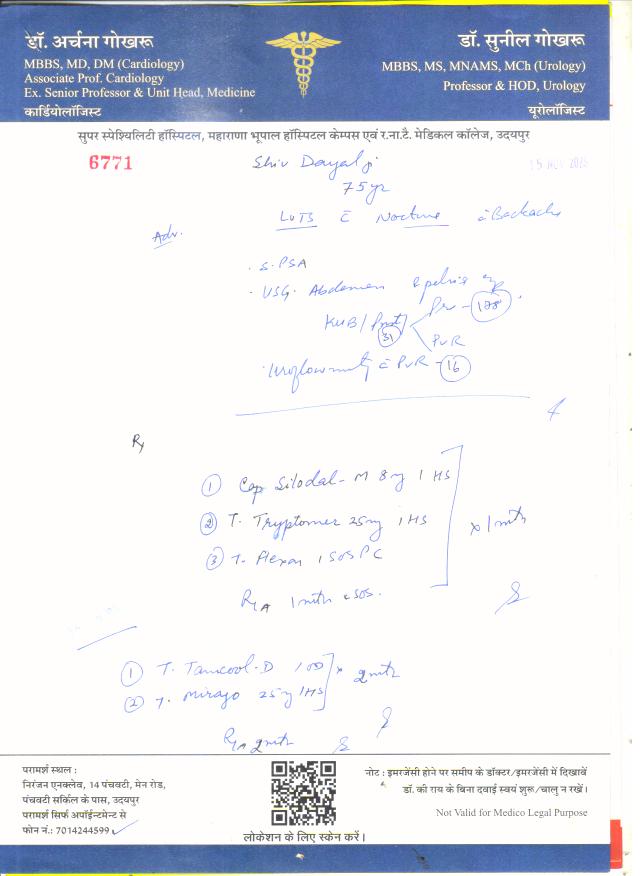 डॉ. अर्चना गोखरू
MBBS, MD, DM (Cardiology)
Associate Prof. Cardiology
Ex. Senior Professor & Unit Head, Medicine
कार्डियोलॉजिस्ट
डॉ. सुनील गोखरू
MBBS, MS, MNAMS, MCh (Urology)
Professor & HOD, Urology
यूरोलॉजिस्ट
सुपर स्पेश्यिलिटी हॉस्पिटल, महाराणा भूपाल हॉस्पिटल केम्पस एवं र.ना.टै. मेडिकल कॉलेज, उदयपुर
6771
Shiv Dayal ji
75 yr
LUTS c Nocturia c Backache
Adv.
. S. PSA
. USG. Abdomen & pelvis
KUB/Prost 31 Pr - 178
PVR
. Uroflowmetry c PVR - 16
Rx
1 Cap Silodal-M 8mg 1 HS
2 T. Tryptomer 25mg 1 HS
3 T. Flexon 1 SOS PC
x 1 mth
R/A 1 mth c SOS.
1 T. Tamcool-D 1 OD
2 T. Mirago 25mg 1 HS
x 2 mth
R/A 2 mth
परामर्श स्थल :
निरंजन एनक्लेव, 14 पंचवटी, मेन रोड,
पंचवटी सर्किल के पास, उदयपुर
परामर्श सिर्फ अपॉईन्टमेन्ट से
फोन नं.: 7014244599
लोकेशन के लिए स्केन करें।
नोट : इमरजेंसी होने पर समीप के डॉक्टर/इमरजेंसी में दिखावें
डॉ. की राय के बिना दवाई स्वयं शुरू/चालु न रखें।
Not Valid for Medico Legal Purpose